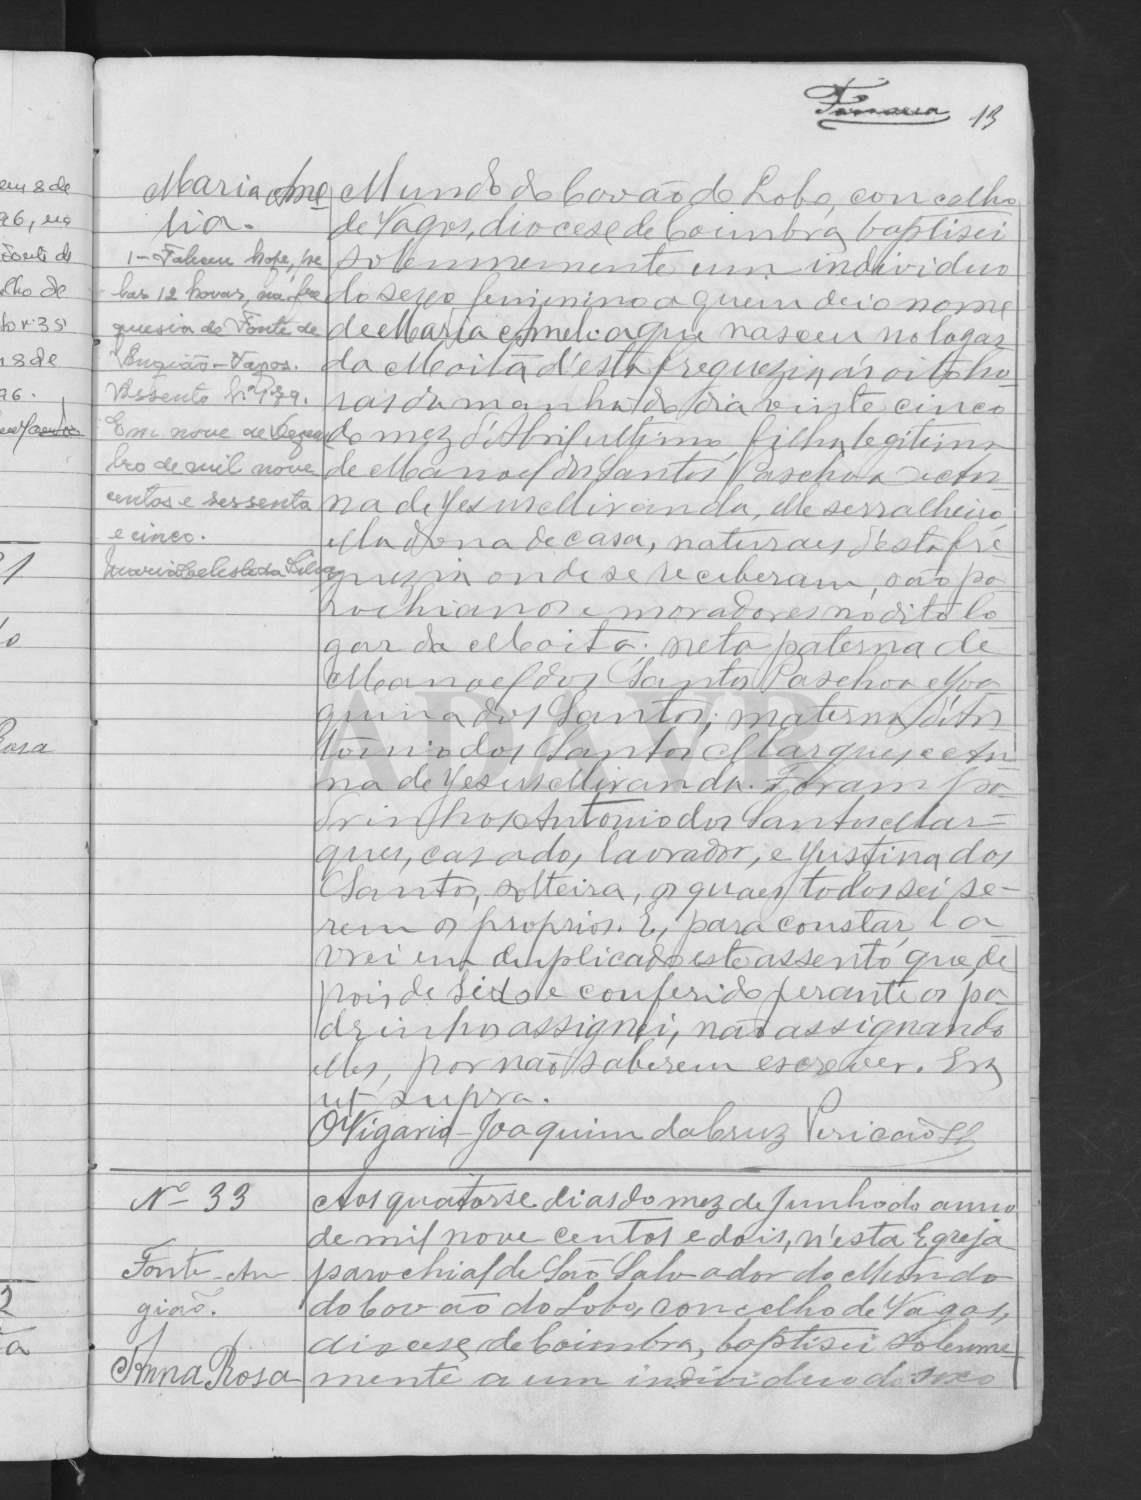 Fonseca 13
Maria Ame
lia.
1 - Faleceu hoje, pe
las 12 horas, na fre
guesia de Fonte de
Angião - Vagos.
Assento N.º 179.
Em nove de Dezem
bro de mil nove
centos e sessenta
e cinco.
Maria Celeste da Silva
Mundo do Covão do Lobo, concelho
de Vagos, diocese de Coimbra, baptisei
solemnemente um individuo
do sexo feminino a quem dei o nome
de Maria Amelia que nasceu no logar
da Moita d'esta freguezia ás oito ho-
ras da manhã do dia vinte cinco
do mez d'Abril ultimo, filha legitima
de Manoel dos Santos Paschoa e An-
na de Jesus Miranda, elle serralheiro
ella dona de casa, naturaes d'esta fre
guezia onde se receberam, são pa
rochianos e moradores no dito lo
gar da Moita; neta paterna de
Manoel dos Santos Paschoa e Joa
quina dos Santos; materna d'An
tonio dos Santos Marques e An
na de Jesus Miranda. Foram pa-
drinhos Antonio dos Santos Mar-
ques, casado, lavrador, e Justina dos
Santos, solteira, os quaes todos sei se-
rem os proprios. E, para constar, la
vrei em duplicado este assento que, de
pois de lido e conferido perante os pa-
drinhos assignei, não assignando
elles, por não saberem escrever. Era
ut supra.
O Vigario - Joaquim da Cruz Pericão
Nº 33
Fonte - An
gião.
Anna Rosa
Aos quatorse dias do mez de Junho do anno
de mil nove centos e dois, n'esta Egreja
parochial de São Salvador do Mundo
do Covão do Lobo, concelho de Vagos,
diocese de Coimbra, baptisei solemne
mente a um individuo do sexo
em 8 de
96, no
Fonte de
lho de
n.º 35
8 de
96.
1
Rosa
2
ADAVR